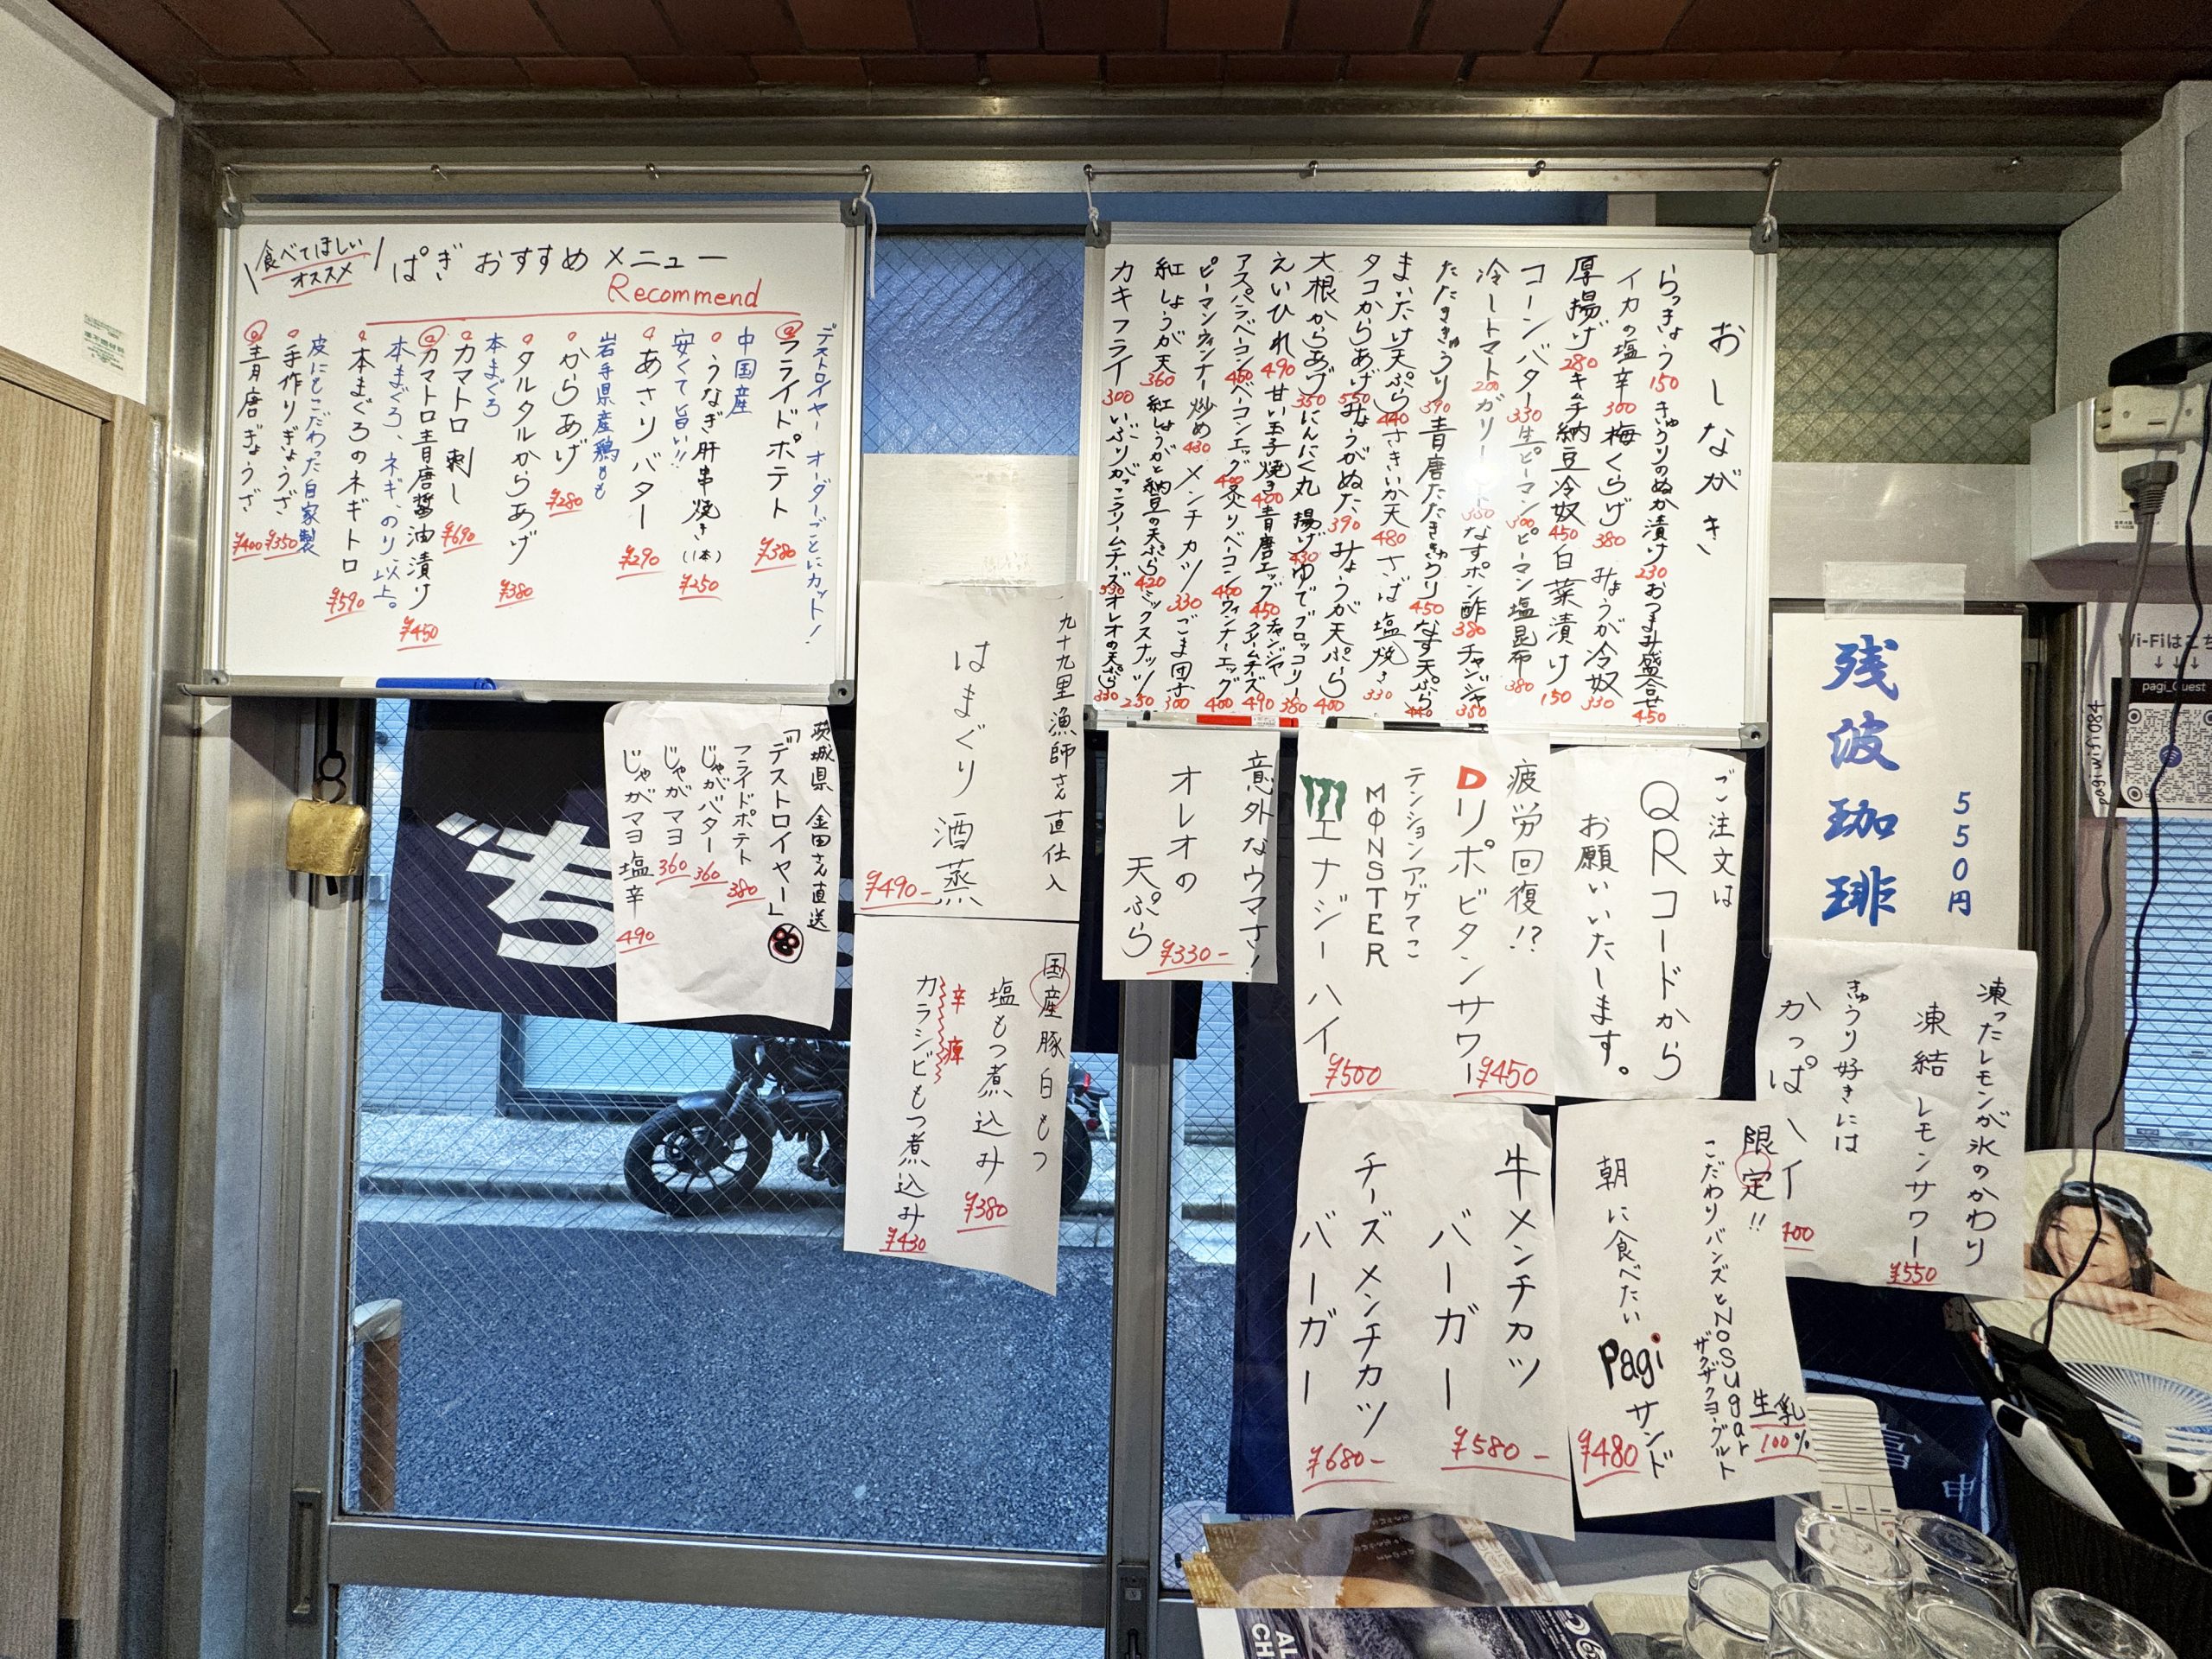 食べてほしい
オススメ
ぱぎおすすめメニュー
Recommend
デストロイヤー オーダーごとにカット!
フライドポテト ¥380
中国産
うなぎ肝串焼き(1本) ¥250
安くて旨い!!
あさりバター ¥290
岩手県産鶏もも
からあげ ¥280
タルタルからあげ ¥380
本まぐろ
カマトロ刺し ¥690
カマトロ青唐醤油漬け ¥450
本まぐろ、ネギ、のり以上。
本まぐろのネギトロ ¥590
皮にもこだわった自家製
手作りぎょうざ ¥350
青唐ぎょうざ ¥400
おしながき
らっきょう 150 きゅうりのぬか漬け 230 おつまみ盛合せ 450
イカの塩辛 300 梅くらげ 380 みょうが冷奴 330
厚揚げ 280 キムチ納豆冷奴 450 白菜漬け 150
コーンバター 330 生ピーマン 300 ピーマン塩昆布 380
冷しトマト 200 ガリ 350 なすポン酢 380 チャンジャ 350
たたききゅうり 390 青唐たたききゅうり 450 なす天ぷら 440
まいたけ天ぷら 440 さきいか天 480 さば塩焼き 330
タコからあげ 550 みょうがぬた 390 みょうが天ぷら 400
大根からあげ 350 にんにく丸揚げ 430 ゆでブロッコリー 380
えいひれ 490 甘い玉子焼き 400 青唐エッグ 450 チャンジャクリームチーズ 490
アスパラベーコン 460 ベーコンエッグ 400 炙りベーコン 400 ウィンナーエッグ 400
ピーマンウィンナー炒め 430 メンチカツ 330 ごま団子 300
紅しょうが天 360 紅しょうがと納豆の天ぷら 420 ミックスナッツ 250
カキフライ 300 いぶりがっこクリームチーズ 330 オレオの天ぷら 330
茨城県 金田さん直送
「デストロイヤー」
フライドポテト 380
じゃがバター 360
じゃがマヨ 360
じゃがマヨ塩辛 490
九十九里漁師さん直仕入
はまぐり酒蒸 ¥490-
国産豚白もつ
塩もつ煮込み ¥380
辛 痺
カラシビもつ煮込み ¥430
意外なウマさ!
オレオの
天ぷら
¥330-
疲労回復!?
Dリポビタンサワー ¥450
テンションアゲてこ
MONSTER
エナジーハイ ¥500
ご注文は
QRコードから
お願いいたします。
残波珈琲
550円
凍ったレモンが氷のかわり
凍結レモンサワー ¥550
きゅうり好きには
かっぱハイ
牛メンチカツ
バーガー ¥580-
チーズメンチカツ
バーガー ¥680-
限定!!
こだわりバンズとNo Sugar
ザクザクヨーグルト
生乳
100%
朝に食べたい
Pagiサンド
¥480
Wi-Fiはこち
↓↓↓
pagi_Guest
pagiwifi084
ち